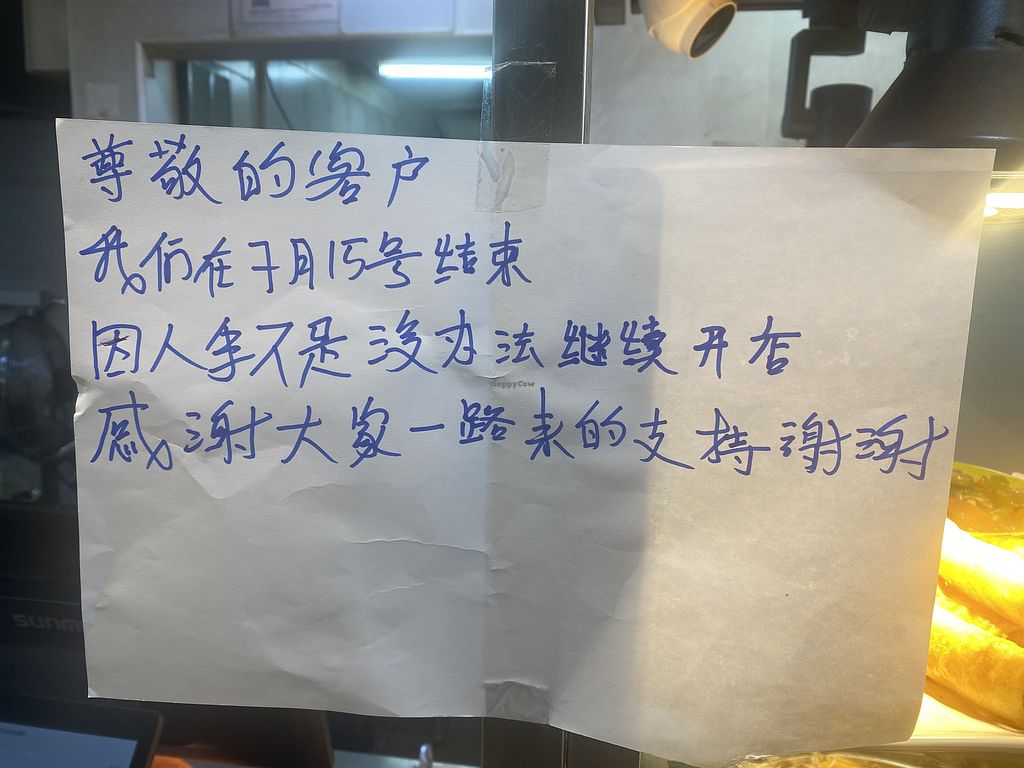 尊敬的客户
我们在7月15号结束
因人手不足没办法继续开店
感谢大家一路来的支持谢谢
HappyCow
SUNMI